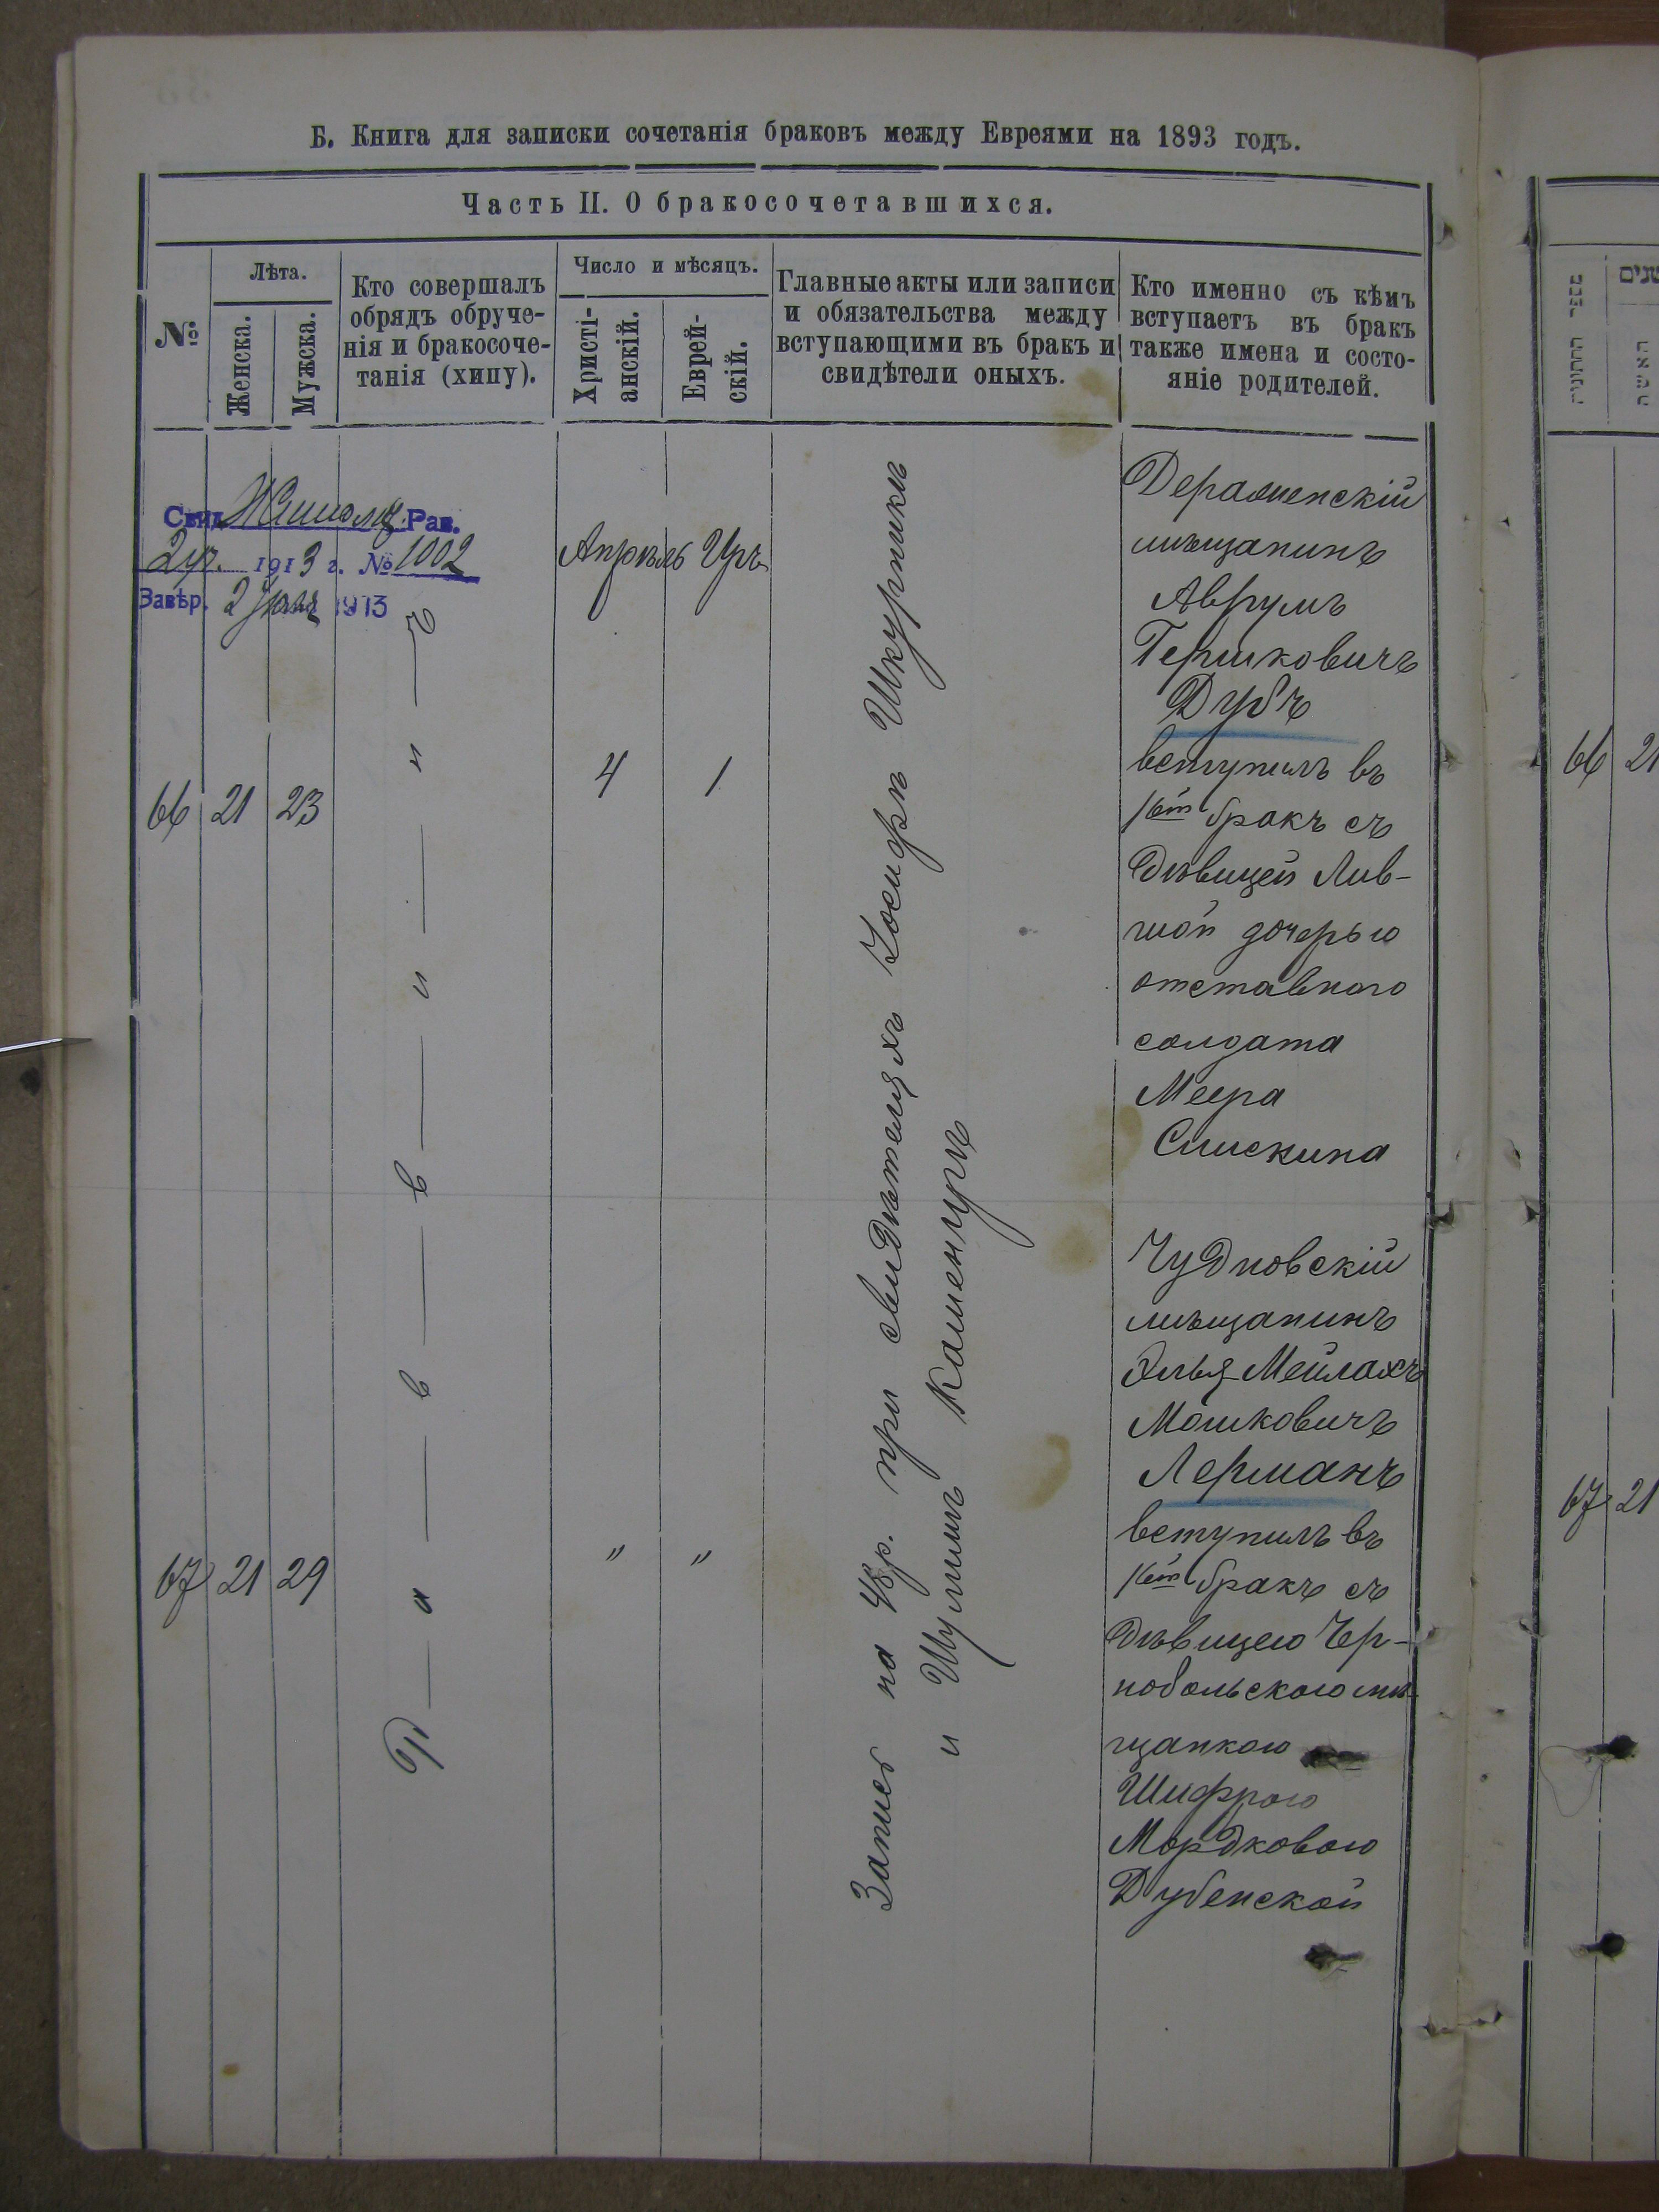 Б. Книга для записки сочетанія браковъ между Евреями на 1893 годъ.
Часть II. О бракосочетавшихся.
№
Лѣта.
Женска.
Мужска.
Кто совершалъ
обрядъ обруче-
нія и бракосоче-
танія (хипу).
Число и мѣсяцъ.
Христі-
анскій.
Еврей-
скій.
Главные акты или записи
и обязательства между
вступающими въ бракъ и
свидѣтели оныхъ.
Кто именно съ кѣмъ
вступаетъ въ бракъ
также имена и состо-
яніе родителей.
Свид. Житом. Рав.
1913 г. № 1002
Завѣр. 2 1913
Апрѣль Иръ
66 21 23
4 1
Р а в в и н ъ
Запись на 48 р. при свидѣтеляхъ Іосифѣ Шкурникѣ
и Шулимѣ Каменирѣ
мѣщанинъ
Аврумъ
Гершковичъ
Дубъ
вступилъ въ
1вый бракъ съ
дѣвицей Лив-
шой дочерью
отставного
солдата
Меера
Слискина
67 21 29
" "
Чудновскій
мѣщанинъ
Элья-Мейлахъ
Мошковичъ
Лерманъ
вступилъ въ
1вый бракъ съ
дѣвицею Чер-
нобольскою мѣ-
щанкою
Шифрою
Мордковою
Дубенской
מספר החתונות
שנים
האשה
66 21
67 21